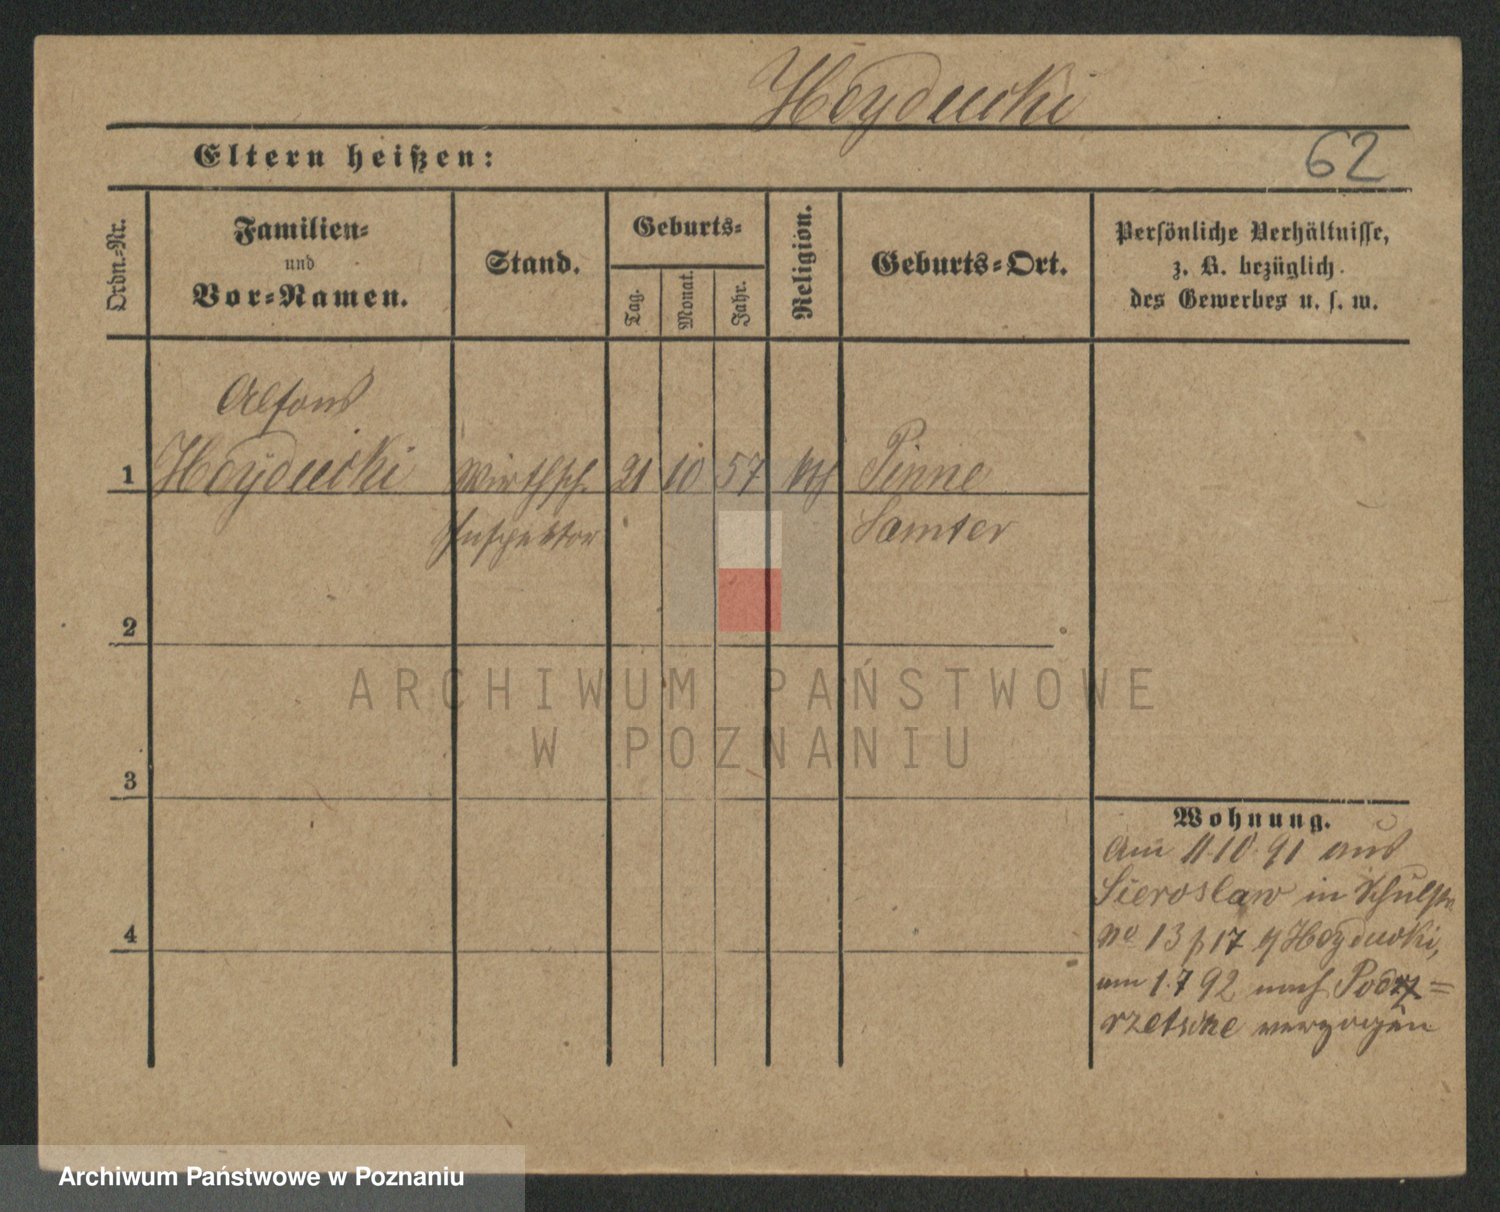 Hoyducki
Eltern heißen:
62
Ordn.-Nr.
Familien-
und
Vor-Namen.
Stand.
Geburts-
Tag.
Monat.
Jahr.
Religion.
Geburts-Ort.
Persönliche Verhältnisse,
z. B. bezüglich
des Gewerbes u. s. w.
Alfons
1 Hoyducki Wirthsch. 21 10 57 kth Pinne
Inspektor Samter
2
3
4
Wohnung.
Am 11.10.91 aus
Sieroslaw in Schulstr
No 13 17 Hoyducki,
am 1.7 92 nach
verzogen
ARCHIWUM PAŃSTWOWE
W POZNANIU
Archiwum Państwowe w Poznaniu